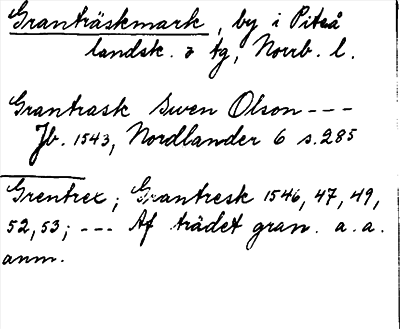 Granträskmark, by i Piteå
landsk. o tg, Norrb. l.
Grantrask Swen Olson - - -
Jb. 1543, Nordlander 6 s. 285
Grentrex; Grantresk 1546, 47, 49,
52, 53; - - - Af trädet gran. a. a.
anm.